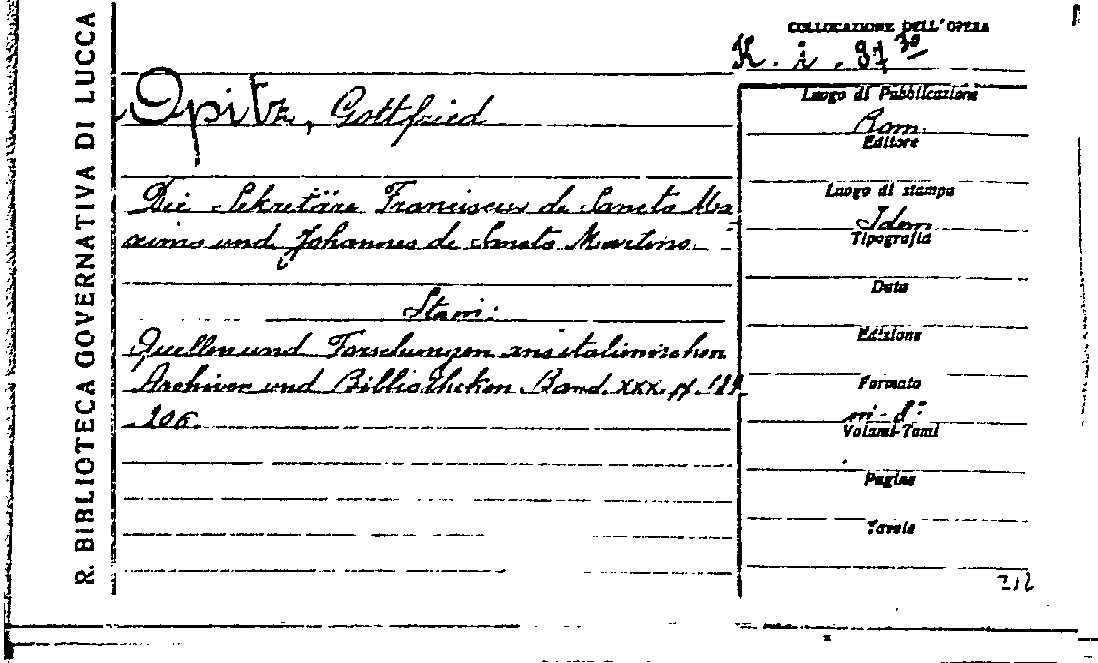 R. BIBLIOTECA GOVERNATIVA DI LUCCA
COLLOCAZIONE DELL'OPERA
K. i. 97 30
Opitz, Gottfried
Die Sekretäre Franciscus de Sancto Ma
ximo und Johannes de Sancto Martino.
Stan:
Quellen und Forschungen aus italienischen
Archiven und Bibliotheken Band. XXX. pp. 189
206.
Luogo di Pubblicazione
Rom.
Editore
Luogo di stampa
Idem
Tipografia
Data
Edizione
Formato
in-8°
Volumi-Tomi
Pagine
Tavole
212